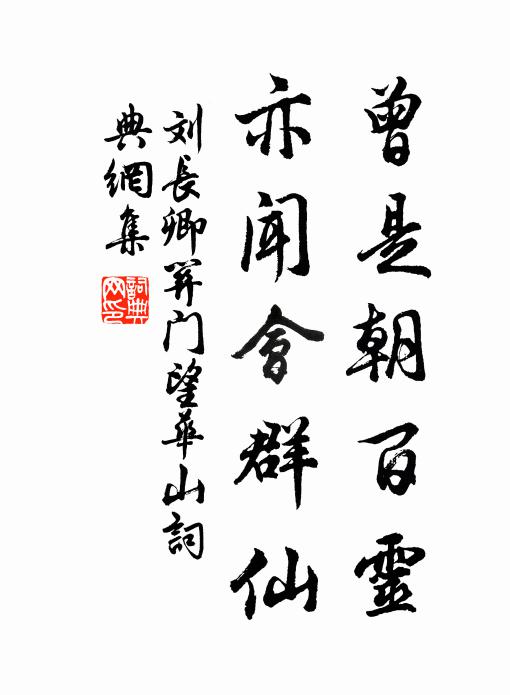 曾是朝百靈
亦闻會群仙
刘長卿關门望華山詞
典網集
詞典
网印